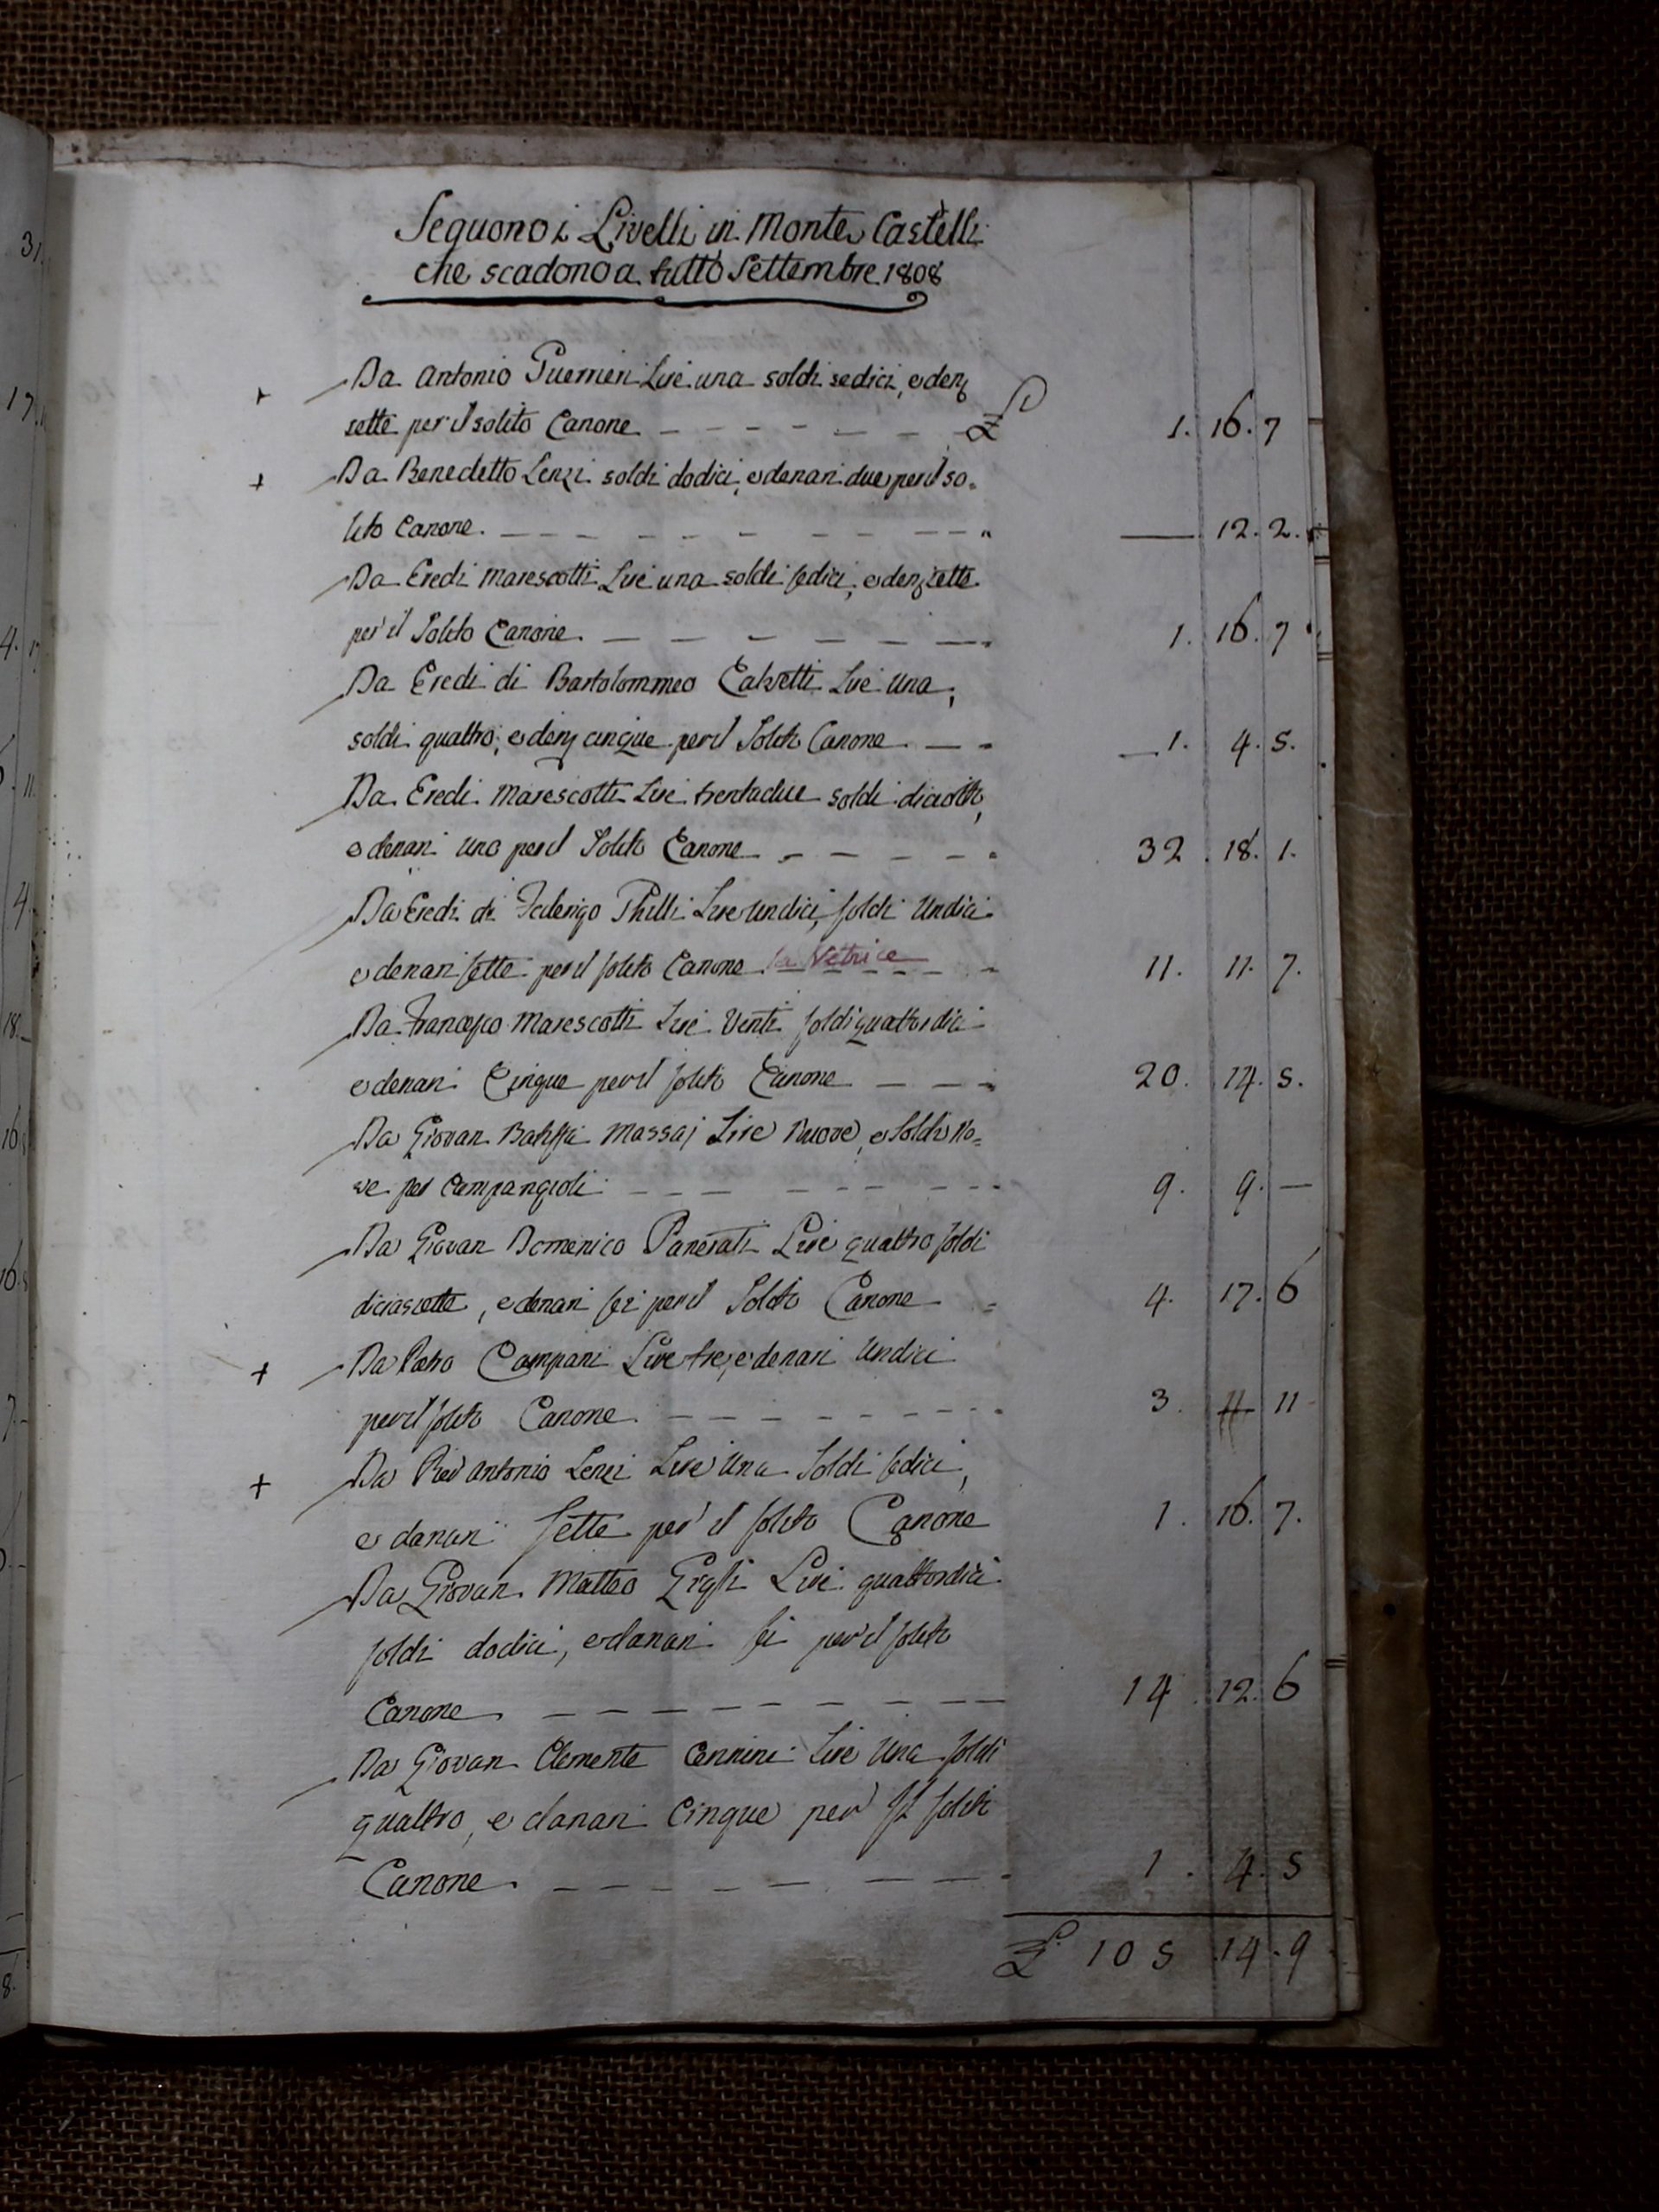 Seguono i Livelli in Monte Castelli
che scadono a tutto Settembre 1808
Da Antonio Guerrieri Lire una soldi sedici, e denj
sette per il solito Canone £ 1. 16. 7
+ Da Benedetto Lenzi soldi dodici, e denari due per il so=
lito Canone. " — 12. 2.
Da Eredi Marescotti Lire una soldi sedici, e denj sette
per il Solito Canone. 1. 16. 7
Da Eredi di Bartolommeo Calvetti Lire una,
soldi quattro, e denj cinque per il Solito Canone 1. 4. 5.
Da Eredi Marescotti Lire trentadue soldi diciotto,
e denari uno per il Solito Canone 32. 18. 1.
Da Eredi di Federigo Lire undici, soldi Undici
e denari sette per il solito Canone la Vetrice 11. 11. 7.
Da Francesco Marescotti Lire Venti soldi quattordici
e denari Cinque per il solito Canone 20. 14. 5.
Da Giovan Batista Massaj Lire Nuove, e Soldi No=
ve per Campangioli 9. 9. —
Da Giovan Domenico Lire quattro soldi
diciassette, e denari sei per il Solito Canone 4. 17. 6
+ Da Pietro Campani Lire tre, e denari Undici
per il solito Canone. 3. 11
+ Da Pier Antonio Lenzi Lire Una Soldi sedici,
e danari Sette per il solito Canone 1. 16. 7.
Da Giovan Matteo Gigli Lire quattordici
soldi dodici, e danari sei per il solito
Canone 14. 12. 6
Da Giovan Clemente Cennini Lire Una soldi
quattro, e danari Cinque per Il solito
Canone. 1. 4. 5
£ 105. 14. 9